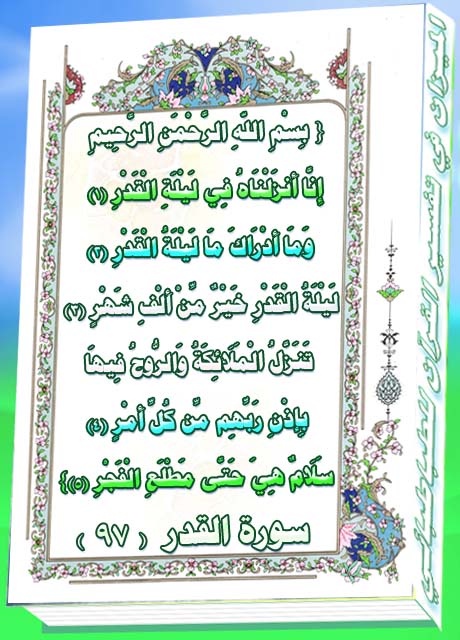 { بِسْمِ اللَّهِ الرَّحْمَنِ الرَّحِيمِ
إِنَّا أَنزَلْنَاهُ فِي لَيْلَةِ الْقَدْرِ (١)
وَمَا أَدْرَاكَ مَا لَيْلَةُ الْقَدْرِ (٢)
لَيْلَةُ الْقَدْرِ خَيْرٌ مِّنْ أَلْفِ شَهْرٍ (٣)
تَنَزَّلُ الْمَلَائِكَةُ وَالرُّوحُ فِيهَا
بِإِذْنِ رَبِّهِم مِّن كُلِّ أَمْرٍ (٤)
سَلَامٌ هِيَ حَتَّى مَطْلَعِ الْفَجْرِ (٥)}
سورة القدر ( ٩٧ )
الميزان في تفسير القرآن للطباطبائي